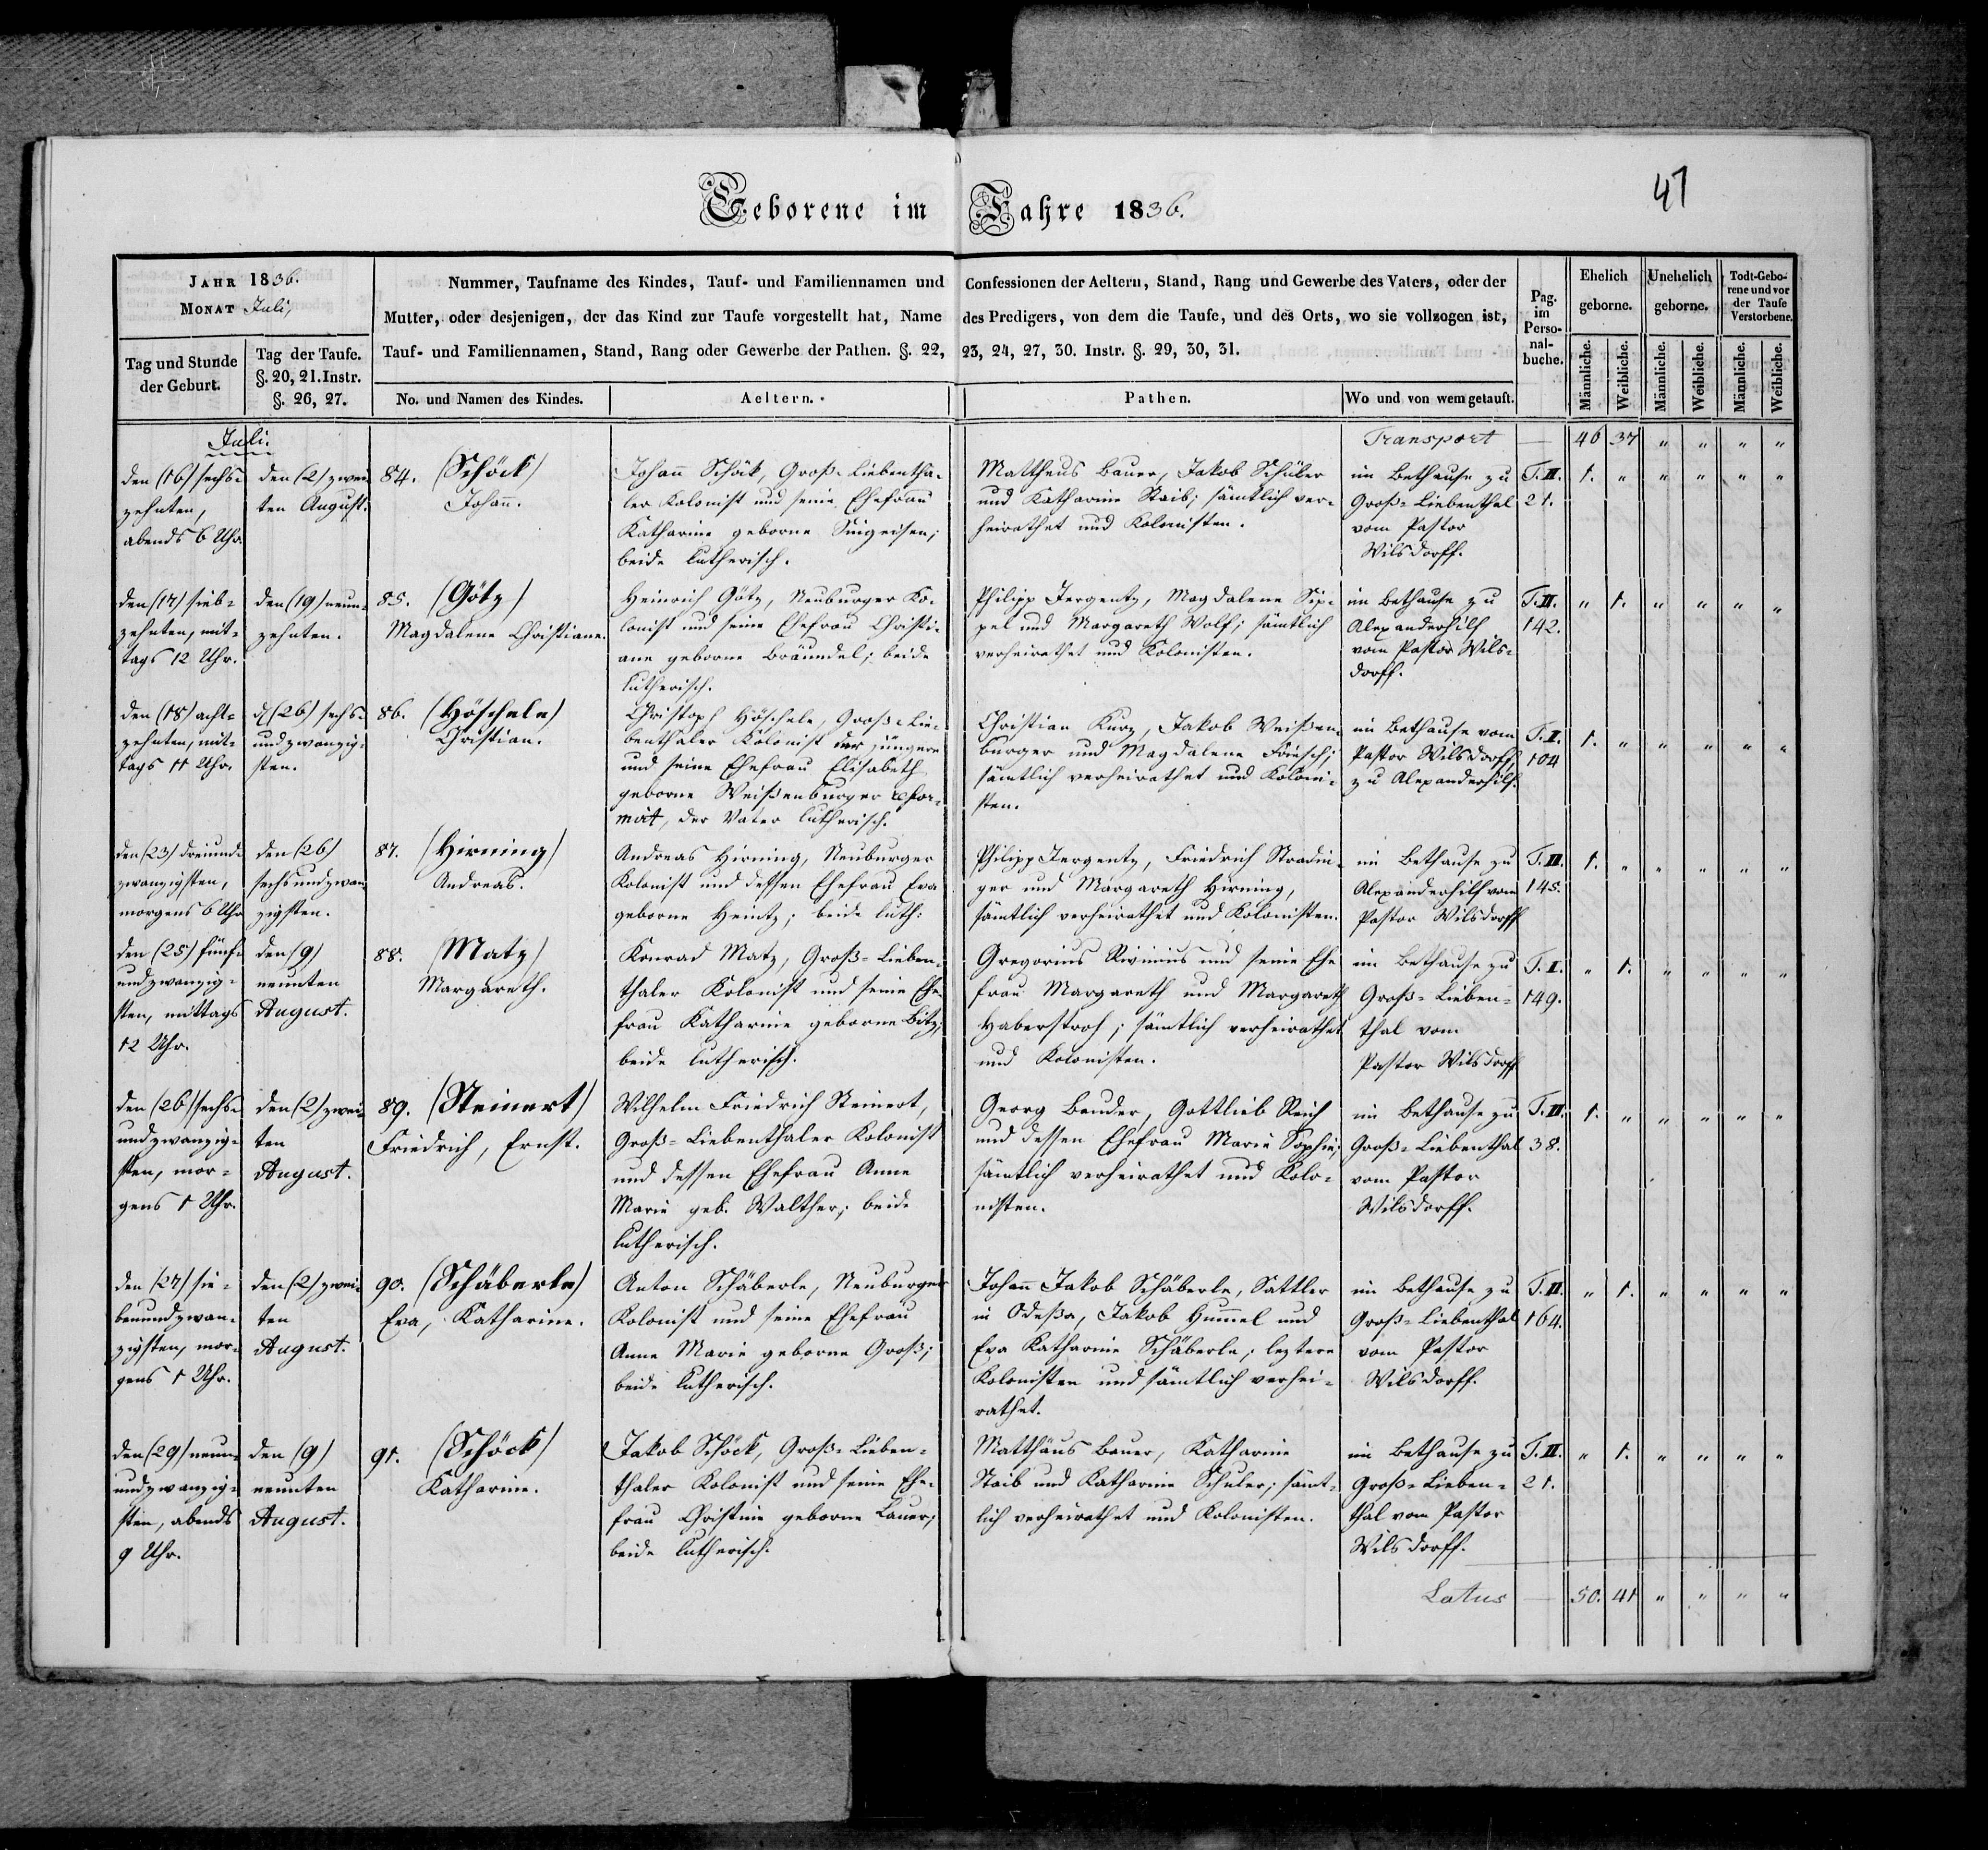 Geborene im Jahre 1836.
47
JAHR 1836.
MONAT Juli,
Tag und Stunde der Geburt.
Tag der Taufe. §. 20, 21. Instr. §. 26, 27.
Nummer, Taufname des Kindes, Tauf- und Familiennamen und Confessionen der Aeltern, Stand, Rang und Gewerbe des Vaters, oder der
Mutter, oder desjenigen, der das Kind zur Taufe vorgestellt hat, Name des Predigers, von dem die Taufe, und des Orts, wo sie vollzogen ist,
Tauf- und Familiennamen, Stand, Rang oder Gewerbe der Pathen. §. 22, 23, 24, 27, 30. Instr. §. 29, 30, 31.
No. und Namen des Kindes.
Aeltern.
Pathen.
Wo und von wem getauft.
Pag. im Perso-nal-buche.
Ehelich geborne.
Unehelich geborne.
Todt-Gebo-rene und vor der Taufe Verstorbene.
Männliche. Weibliche. Männliche. Weibliche. Männliche. Weibliche.
Juli.
Transport — 46 37 " " " "
den (16) sechs-
zehnten,
abends 6 Uhr.
den (2) zwei-
ten August.
84. (Schöck)
Johann.
Johann Schök, Groß-Liebentha-
ler Kolonist und seine Ehefrau
Katharine geborne Singeisen;
beide lutherisch.
Mattheus Bauer, Jakob Schüler
und Katharine Staib; sämtlich ver-
heirathet und Kolonisten.
im Bethause zu
Groß-Liebenthal
vom Pastor
Wilsdorff.
T. II.
21.
1. " " " " "
den (17) sieb-
zehnten, mit-
tags 12 Uhr.
den (19) neun-
zehnten.
85. (Götz)
Magdalene Christiane.
Heinrich Götz, Neuburger Ko-
lonist und seine Ehefrau Christi-
ane geborne Bräundel; beide
lutherisch.
Philipp Jergentz, Magdalene Sip-
pel und Margareth Wolf; sämtlich
verheirathet und Kolonisten.
im Bethause zu
Alexanderhilf
vom Pastor Wils-
dorff.
T. II.
142.
" 1. " " " "
den (18) acht-
zehnten, mit-
tags 11 Uhr.
d (26) sechs-
undzwanzig-
sten.
86. (Höschele)
Christian.
Christoph Höschele, Groß-Lie-
benthaler Kolonist der jüngere
und seine Ehefrau Elisabeth
geborne Weißenburger refor-
mirt, der Vater lutherisch.
Christian Kurz, Jakob Weißen-
burger und Magdalene Frösch;
sämtlich verheirathet und Koloni-
sten.
im Bethause vom
Pastor Wilsdorff,
zu Alexanderhilf.
T. I.
104
1. " " " " "
den (23) dreiund-
zwanzigsten,
morgens 6 Uhr
den (26)
sechsundzwan-
zigsten.
87. (Hirning)
Andreas.
Andreas Hirning, Neuburger
Kolonist und dessen Ehefrau Eva
geborne Heintz; beide luth:
Philipp Jergentz, Friedrich Stradin-
ger und Margareth Hirning,
sämtlich verheirathet und Kolonisten.
im Bethause zu
Alexanderhilf vom
Pastor Wilsdorff
T. II.
145.
1. " " " " "
den (25) fünf-
undzwanzig-
sten, mittags
12 Uhr.
den (9)
neunten
August.
88. (Matz)
Margareth.
Konrad Matz, Groß-Lieben-
thaler Kolonist und seine Ehe-
frau Katharine geborne Bitz;
beide lutherisch.
Gregorius Rivinius und seine Ehe
frau Margareth und Margareth
Haberstroh; sämtlich verheirathet
und Kolonisten.
im Bethause zu
Groß-Lieben-
thal vom
Pastor Wilsdorff
T. I.
149.
" 1. " " " "
den (26) sechs-
undzwanzig-
sten, mor-
gens 1 Uhr.
den (2) zwei-
ten
August.
89. (Steinert)
Friedrich, Ernst.
Wilhelm Friedrich Steinert,
Groß-Liebenthaler Kolonist
und dessen Ehefrau Anne
Marie geb. Walther; beide
lutherisch.
Georg Bender, Gottlieb Reich
und dessen Ehefrau Marie Sophie;
sämtlich verheirathet und Kolo-
nisten.
im Bethause zu
Groß-Liebenthal
vom Pastor
Wilsdorff.
T. II.
38.
1. " " " " "
den (27) sie-
benundzwan-
zigsten, mor-
gens 1 Uhr.
den (2) zwei-
ten
August.
90. (Schäberle)
Eva, Katharine.
Anton Schäberle, Neuburger
Kolonist und seine Ehefrau
Anne Marie geborne Groß;
beide lutherisch.
Johann Jakob Schäberle, Sattler
in Odeßa, Jakob Hummel und
Eva Katharine Schäberle; leztere
Kolonisten und sämtlich verhei-
rathet.
im Bethause zu
Groß-Liebenthal
vom Pastor
Wilsdorff.
T. II.
164.
" 1. " " " "
den (29) neun-
undzwanzig-
sten, abends
9 Uhr.
den (9)
neunten
August.
91. (Schöck)
Katharine.
Jakob Schöck, Groß-Lieben-
thaler Kolonist und seine Ehe-
frau Christine geborne Bauer;
beide lutherisch.
Matthäus Bauer, Katharine
Staib und Katharine Schuler; sämt-
lich verheirathet und Kolonisten.
im Bethause zu
Groß-Lieben-
thal vom Pastor
Wilsdorff.
T. II.
21.
" 1. " " " "
Latus — 50. 41 " " " "